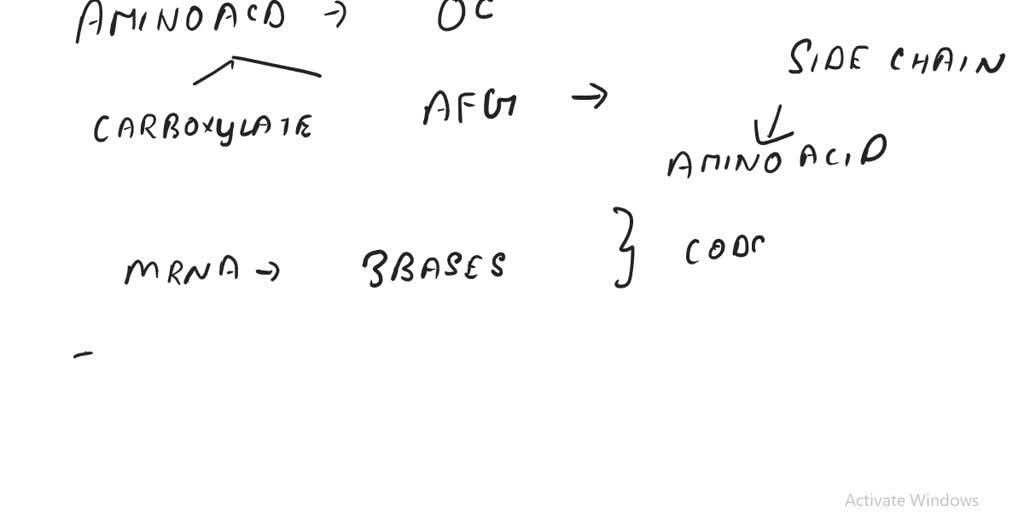 AMINO ACD → OC
SIDE CHAIN
CARBOXYLATE AFG →
AMINO ACID
MRNA → 3BASES } COD
Activate Windows